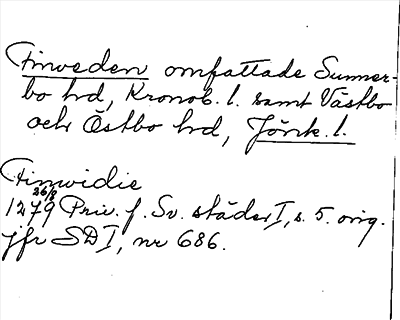 Finveden omfattade Sunner-
bo hd, Kronob. l. samt Västbo
och Östbo hd, Jönk. l.
Finwidie
26/8
1279 Priv. f. Sv. städer I, s. 5. orig.
jfr SD I, nr 686.